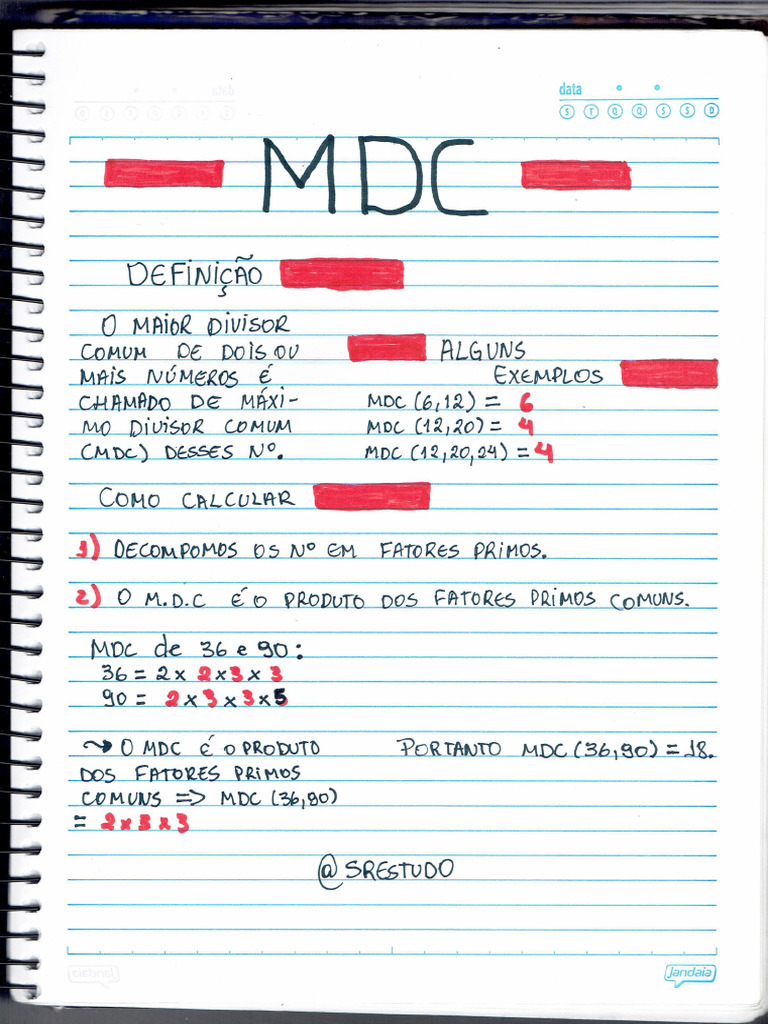 data
S T Q Q S S D
MDC
DEFINIÇÃO
O MAIOR DIVISOR
COMUM DE DOIS OU
MAIS NÚMEROS É
CHAMADO DE MÁXI-
MO DIVISOR COMUM
(MDC) DESSES Nº.
ALGUNS
EXEMPLOS
MDC (6,12) = 6
MDC (12,20) = 4
MDC (12,20,24) = 4
COMO CALCULAR
1) DECOMPOMOS OS Nº EM FATORES PRIMOS.
2) O M.D.C É O PRODUTO DOS FATORES PRIMOS COMUNS.
MDC de 36 e 90:
36 = 2 x 2 x 3 x 3
90 = 2 x 3 x 3 x 5
↝ O MDC É O PRODUTO
DOS FATORES PRIMOS
COMUNS => MDC (36,90)
= 2 x 3 x 3
PORTANTO MDC (36,90) = 18.
@SRESTUDO
Jandaia